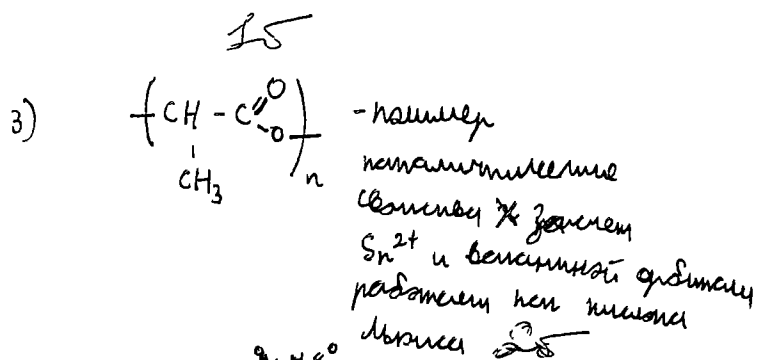 15
3) ( CH - C O O ) n - полимер
CH3
каталитические
свойства X за счет
Sn2+ и вакантной орбитали
работает как кислота
Льюиса